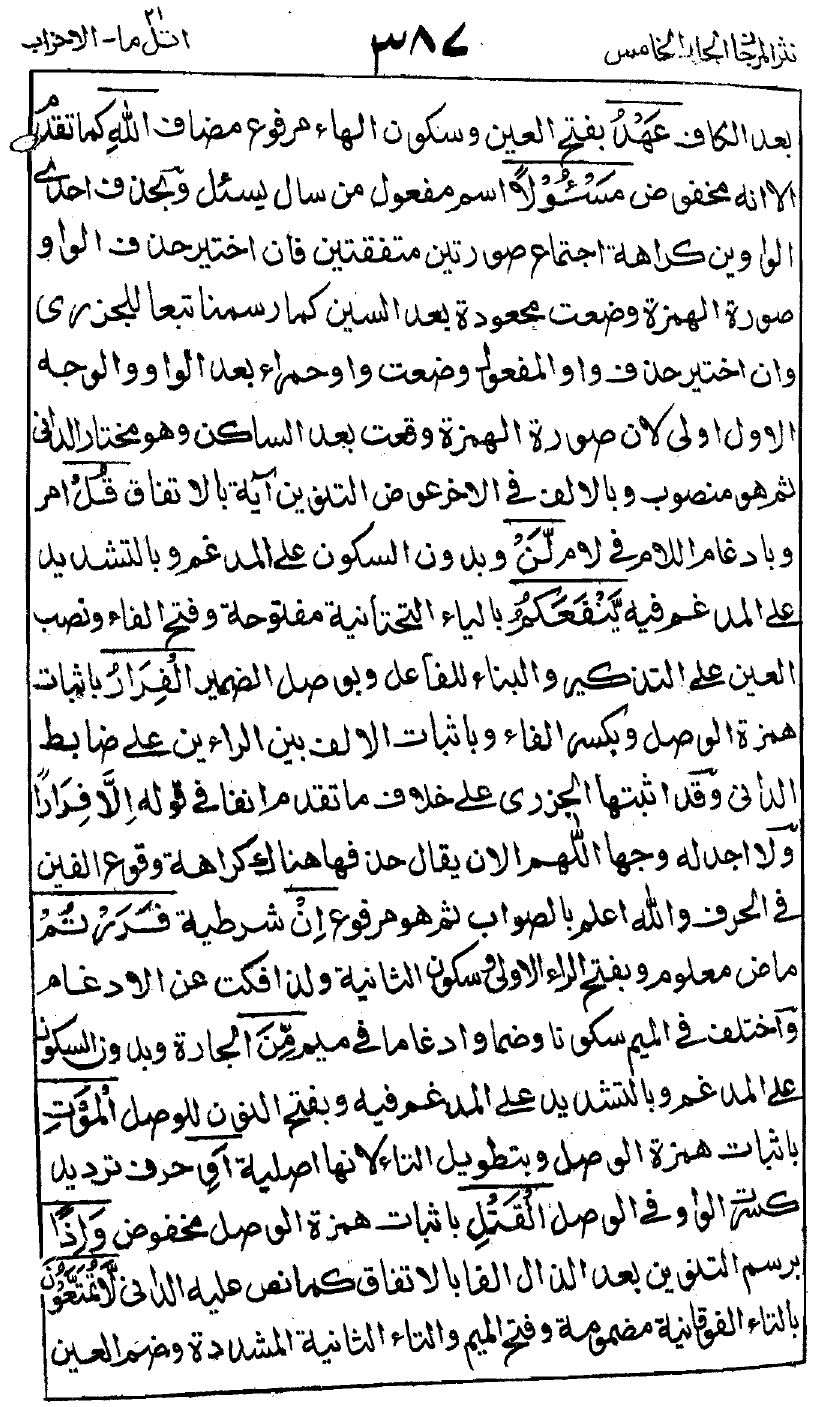 نثر المرجان الجلد الخامس ٣٨٧ اتل ما - الاحزاب ٢١
بعد الكاف عَهْدُ بفتح العين وسكون الهاء مرفوع مضاف اللهِ كما تقدم
الا انه مخفوض مَسْـُٔوْلًا اسم مفعول من سال يسئل وبحذف احدى
الواوين كراهة اجتماع صورتين متفقتين فان اختير حذف الواو
صورة الهمزة وضعت مجعودة بعد السين كما رسمنا تبعا للجزرى
وان اختير حذف واو المفعول وضعت واو حمراء بعد الواو والوجه
الاول اولى لان صورة الهمزة وقعت بعد الساكن وهو مختار الدانى
ثم هو منصوب وبالالف فى الاخر عوض التنوين آية بالاتفاق قُلْ امر
وبادغام اللام فى لام لَّنْ وبدون السكون على المدغم وبالتشديد
على المدغم فيه يَّنْفَعَكُمُ بالياء التحتانية مفتوحة وفتح الفاء ونصب
العين على التذكير والبناء للفاعل وبوصل الضمير الْفِرَارُ باثبات
همزة الوصل وبكسر الفاء وباثبات الالف بين الراءين على ضابط
الدانى وقد اثبتها الجزرى على خلاف ما تقدم انفا فى قوله اِلَّا فِرَارًا
ولا اجد له وجها اللّهم الا ان يقال حذفها هناك كراهة وقوع الفين
فى الحرف والله اعلم بالصواب ثم هو مرفوع اِنْ شرطية فَرَرْتُمْ
ماض معلوم وبفتح الراء الاولى وسكون الثانية ولذا فكت عن الادغام
واختلف فى الميم سكونا وضما وادغاما فى ميم مِّنَ الجارة وبدون السكون
على المدغم وبالتشديد على المدغم فيه وبفتح النون للوصل الْمَوْتِ
باثبات همزة الوصل وبتطويل التاء لانها اصلية اَوِ حرف ترديد
كسرت الواو فى الوصل الْقَتْلِ باثبات همزة الوصل مخفوض وَاِذًا
برسم التنوين بعد الذال الفا بالاتفاق كما نص عليه الدانى لَّا تُمَتَّعُوْنَ
بالتاء الفوقانية مضمومة وفتح الميم والتاء الثانية المشددة وضم العين